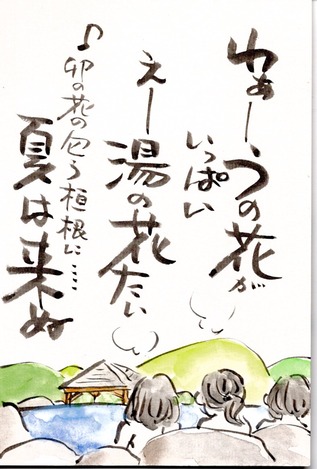 わぁー、うの花が
いっぱい
えー湯の花たい
♪卯の花の匂う垣根に……
夏は来ぬ